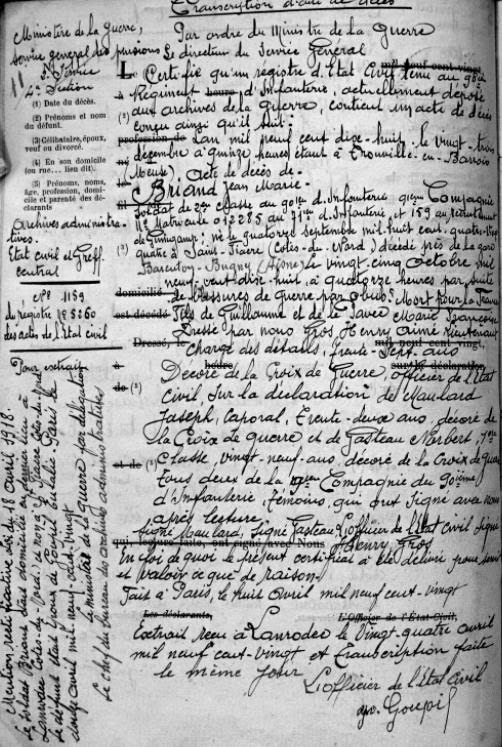 Transcription d'acte de décès
Ministère de la Guerre,
Service général des pensions
2e Service
4e Section
(1) Date du décès.
(2) Prénoms et nom
du défunt.
(3) Célibataire, époux,
veuf ou divorcé.
(4) En son domicile
(ou rue... lieu dit).
(5) Prénoms, noms,
âge, profession, domi-
cile et parenté des dé-
clarants
Archives administra-
tives.
Etat civil et Greff.
central
N° 1159
du registre
des actes de l'Etat civil
Par ordre du Ministre de la Guerre
Le directeur du Service Général
mil neuf cent vingt
Le Certifie qu'un registre d'Etat Civil tenu au 90e
Régiment heure d'Infanterie, actuellement déposé
aux archives de la guerre, contient un acte de décès
conçu ainsi qu'il suit.
profession de L'an mil neuf cent dix-huit, le vingt-trois
décembre à quinze heures étant à
(Meuse). Acte de décès de
Briand Jean Marie.
Soldat de 2me classe au 90e rég. d'Infanterie, Compagnie
N° Matricule 012285 au 71me d'Infanterie, et 159 au recrutement
de Guingamp; né le quatorze septembre mil huit cent quatre-vingt
quatre à Saint-Fiacre (Côtes-du-Nord) décédé près de la gare
(Aisne) le vingt-cinq Octobre mil
neuf-cent-dix-huit, à quatorze heures par suite
domicilié de blessures de guerre par obus. Mort pour la France
est décédé Fils de Guillaume et de Le Saver Marie Françoise
Dressé par nous Gros Henry Aimé Lieutenant
Dressé, le mil neuf cent vingt,
chargé des détails, trente-sept ans
heures sur la déclaration
Décoré de la Croix de Guerre, Officier de l'Etat
de (5) civil, sur la déclaration de Maulard
Joseph, Caporal, trente-deux ans, décoré de
la Croix de guerre et de Gasteau Norbert, 1re
et de (5) Classe, vingt-neuf-ans, décoré de la Croix de Guerre
tous deux de la Compagnie du 90ième
d'Infanterie témoins, qui ont signé avec nous
après lecture.
Signé Maulard, Signé Gasteau, l'officier de l'Etat Civil Signé
qui, lecture faite, ont signé avec Nous Henry Gros
En foi de quoi le présent certificat a été délivré pour servir
et valoir ce que de raison.
Fait à Paris, le huit Avril mil neuf cent-vingt
Les déclarants, L'Officier de l'Etat-Civil,
L'extrait reçu à Lanrodec le vingt-quatre avril
mil neuf cent-vingt et transcription faite
le même jour
L'officier de l'Etat civil
Goupil
Mention rectificative avis du 18 avril 1918.
le soldat Briand était domicilié en dernier lieu à
Lanrodec (Côtes-du-Nord) et non à St Fiacre Côtes-du-Nord
le défunt était époux de
Pour extrait
Paris le
douze avril mil neuf-cent-vingt
Le ministre de la guerre par délégation
Le chef du bureau des archives administratives